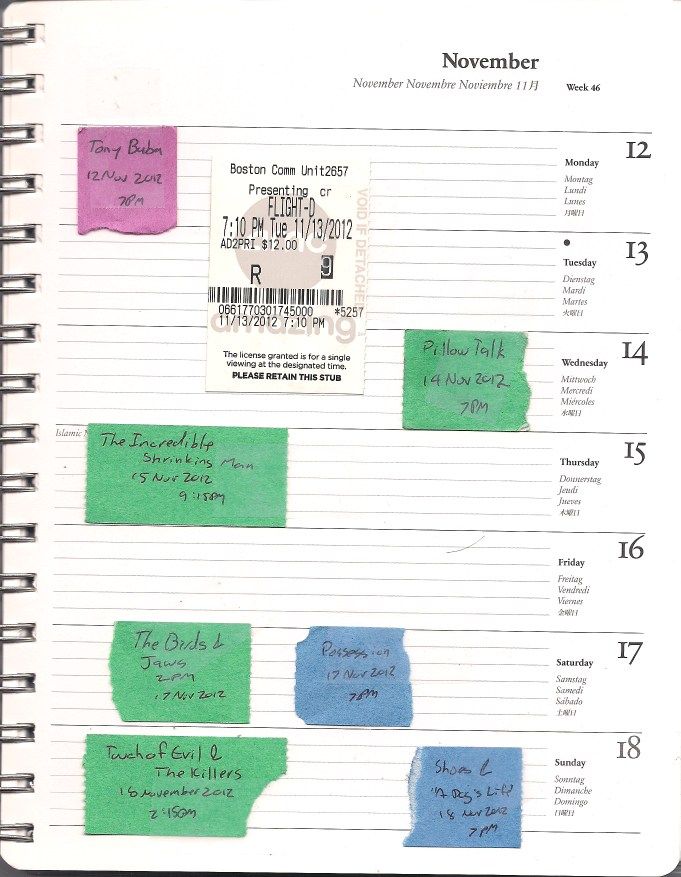 November
November Novembre Noviembre 11月
Week 46
12
Monday
Montag
Lundi
Lunes
月曜日
Tony Buba
12 Nov 2012
7PM
Boston Comm Unit2657
Presenting cr
FLIGHT-D
7:10 PM Tue 11/13/2012
AD2PRI $12.00
R
9
0661770301745000 *5257
11/13/2012 7:10 PM
VOID IF DETACHED
amazing
The license granted is for a single
viewing at the designated time.
PLEASE RETAIN THIS STUB
13
Tuesday
Dienstag
Mardi
Martes
火曜日
14
Wednesday
Mittwoch
Mercredi
Miércoles
水曜日
Pillow Talk
14 Nov 2012
7PM
15
Thursday
Donnerstag
Jeudi
Jueves
木曜日
Islamic N
The Incredible
Shrinking Man
15 Nov 2012
9:15PM
16
Friday
Freitag
Vendredi
Viernes
金曜日
17
Saturday
Samstag
Samedi
Sábado
土曜日
The Birds &
Jaws
2PM
17 Nov 2012
Possession
17 Nov 2012
7PM
18
Sunday
Sonntag
Dimanche
Domingo
日曜日
Touch of Evil &
The Killers
18 November 2012
2:15PM
Shoes &
"A Dog's Life"
18 Nov 2012
7PM